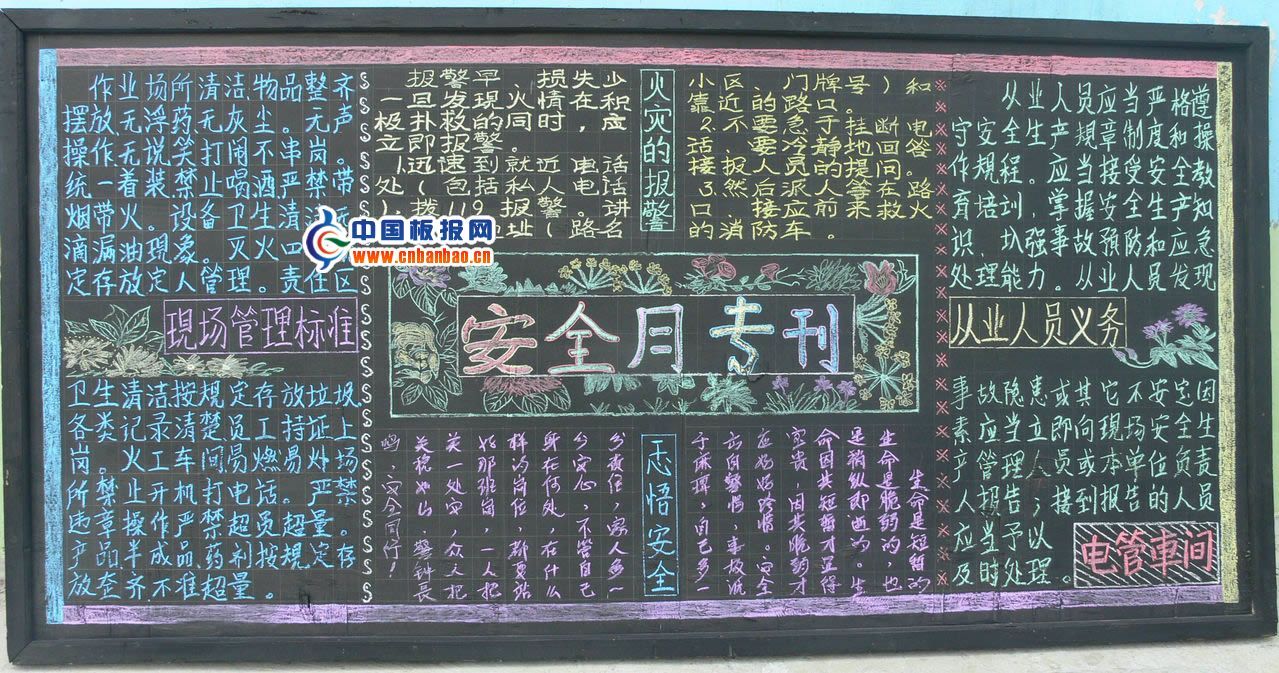 作业场所清洁物品整齐
摆放无浮药无灰尘。无声
操作无说笑打闹不串岗。
统一着装禁止喝酒严禁带
烟带火。设备卫生清洁无
滴漏油现象。灭火
定存放定人管理。责任区
现场管理标准
卫生清洁按规定存放垃圾
各类记录清楚员工持证上
岗。火工车间易燃易炸场
所禁止开机打电话。严禁
违章操作严禁超员超量。
产品半成品药剂按规定存
放垄齐不准超量。
报警早、损失少
一旦发现火情在，积
极扑救的同时，应
立即报警。
1.迅速到就近电话
处（包括私人电话
）拨119报警。讲
址（路名
火灾的报警
小区、门牌号）和
靠近的路口。
2.不要急于挂断电
话，要冷静地回答
接报人员的提问。
3.然后派人等在路
口，接应前来救火
的消防车。
中国板报网
www.cnbanbao.cn
安全月专刊
生命是短暂的
生命是脆弱的，也
是稍纵即逝的。生
命因其短暂才显得
宝贵，因其脆弱才
应好好珍惜。安全
方向警惕，事故洗
于麻痹，自己多一
忐悟安全
分责任，家人多一
分安心，不管自己
身在何处，在什么
样的岗位，都要站
好那班岗，一人把
关一处安，众人把
关稳如山。警钟长
鸣，安全同行！
从业人员应当严格遵
守安全生产规章制度和操
作规程。应当接受安全教
育培训，掌握安全生产知
识，圦强事故预防和应急
处理能力。从业人员发现
从业人员义务
事故隐患或其它不安定因
素应当立即向现场安全生
产管理人员或本单位负责
人报告；接到报告的人员
应当予以
及时处理。
电管車间